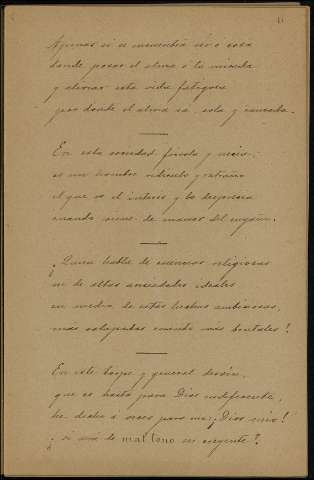 Apenas si se encuentra ser o cosa
donde posar el alma ó la mirada
y
esta vida fatigosa
por donde el alma va, sola y cansada.
En esta sociedad frívola y necia,
es un hombre ridículo y extraño
el que ve el interés y lo desprecia
cuando viene de manos del engaño.
¡Quien hable de creencias religiosas
ni de altas ansiedades ideales
en medio de estas luchas ambiciosas,
más solapadas cuando más brutales!
En este torpe y general desdén,
que es hasta para Dios indiferente,
he dicho á veces para mí: ¡Dios mío!
¿si será de mal tono ser creyente?